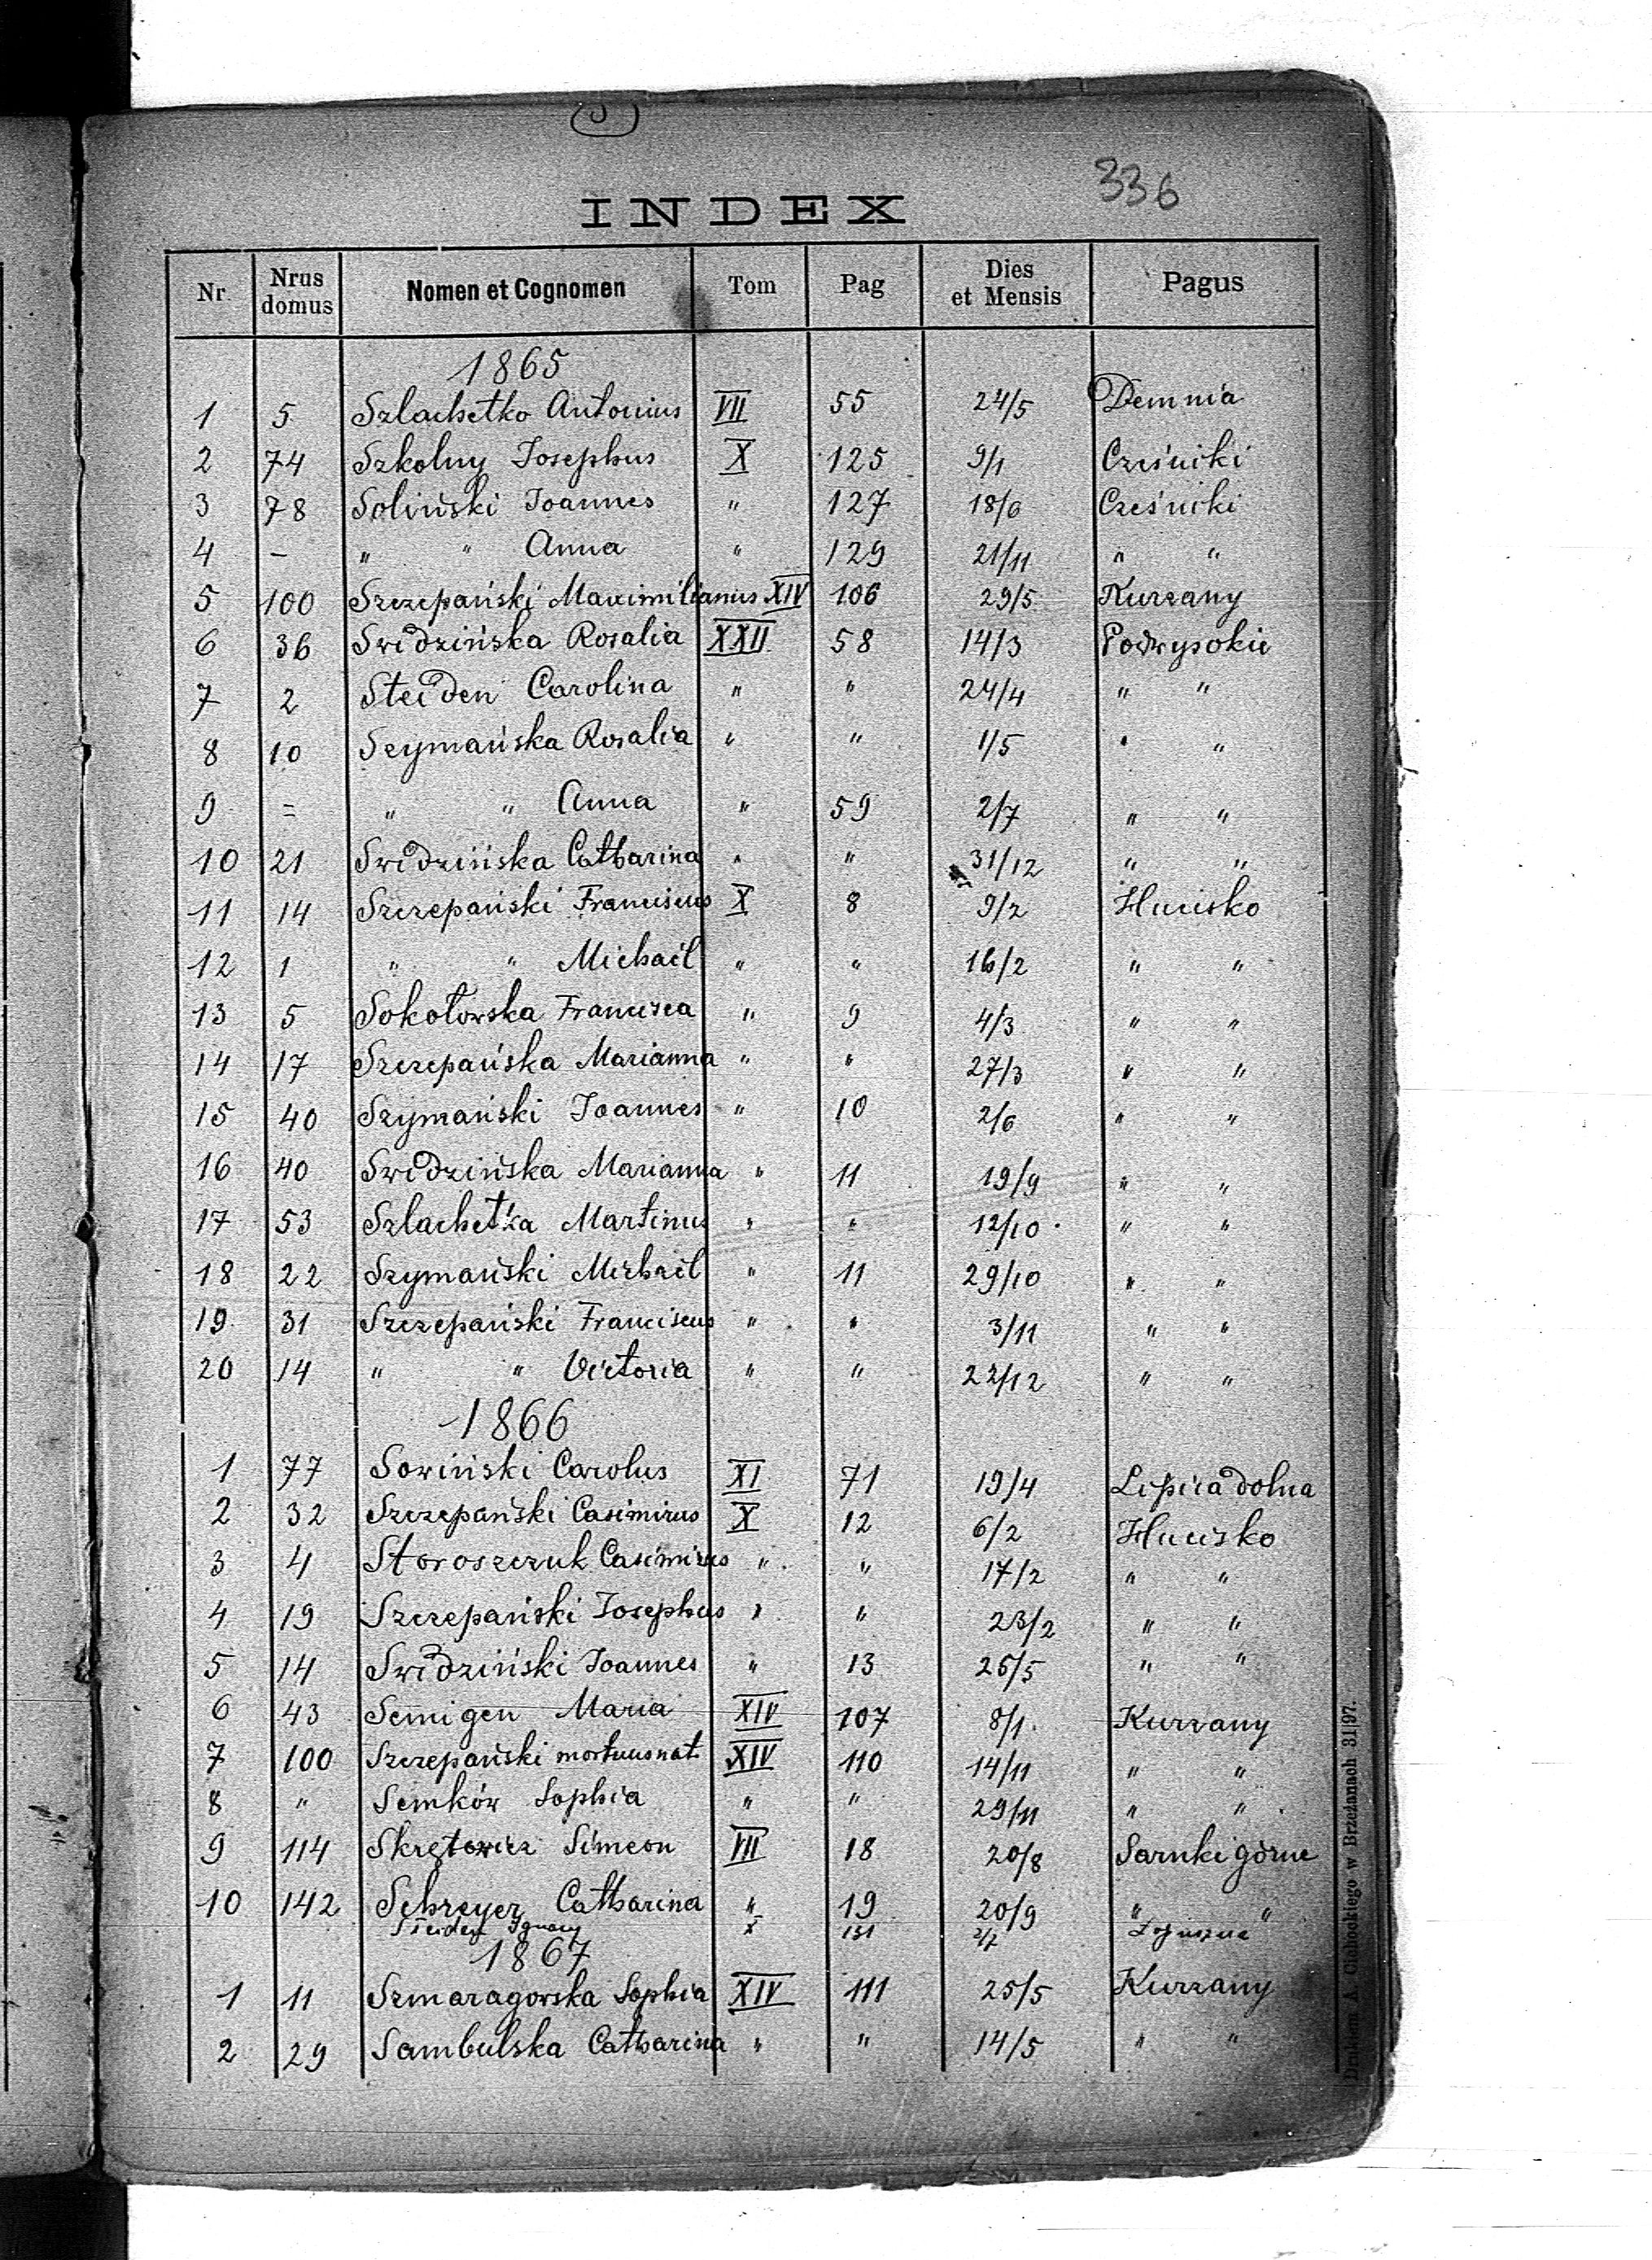 S
336
INDEX
Nr. Nrus domus Nomen et Cognomen Tom Pag Dies et Mensis Pagus
1865
1 5 Szlachetko Antonius VII 55 24/5 Demnia
2 74 Szkolny Josephus X 125 9/1 Cześniki
3 78 Soliński Joannes " 127 18/6 Cześniki
4 - " " Anna " 129 21/11 " "
5 100 Szczepański Maximilianus XIV 106 29/5 Kurzany
6 36 Swidzińska Rosalia XXII 58 14/3 Podwysokie
7 2 Steiden Carolina " " 24/4 " "
8 10 Szymańska Rosalia " " 1/5 " "
9 = " " Anna " 59 2/7 " "
10 21 Swidzińska Catharina " " 31/12 " "
11 14 Szczepański Franciscus X 8 9/2 Hucisko
12 1 " " Michael " " 16/2 " "
13 5 Sokołowska Francisca " 9 4/3 " "
14 17 Szczepańska Marianna " " 27/3 " "
15 40 Szymański Joannes " 10 2/6 " "
16 40 Swidzińska Marianna " 11 19/9 " "
17 53 Szlachetka Martinus " " 12/10 " "
18 22 Szymański Michael " 11 29/10 " "
19 31 Szczepański Franciscus " " 3/11 " "
20 14 " " Victoria " " 22/12 " "
1866
1 77 Sowiński Carolus XI 71 19/4 Lipica dolna
2 32 Szczepański Casimirus X 12 6/2 Hucisko
3 4 Storoszczuk Casimirus " " 17/2 " "
4 19 Szczepański Josephus " " 23/2 " "
5 14 Swidziński Joannes " 13 26/5 " "
6 43 Semigen Maria XIV 107 8/1 Kurzany
7 100 Szczepański mortuus nat. XIV 110 14/11 " "
8 " Semków Sophia " " 29/11 " "
9 114 Skrętowicz Simeon VII 18 20/8 Sarnki górne
10 142 Schreyer Catharina " 19 20/9 " "
Steiden Ignacy X 131 2/7
1867
1 11 Szmaragowska Sophia XIV 111 25/5 Kurzany
2 29 Sambulska Catharina " " 14/5 " "
Drukiem A. Cichockiego w Brzeżanach 31|97.